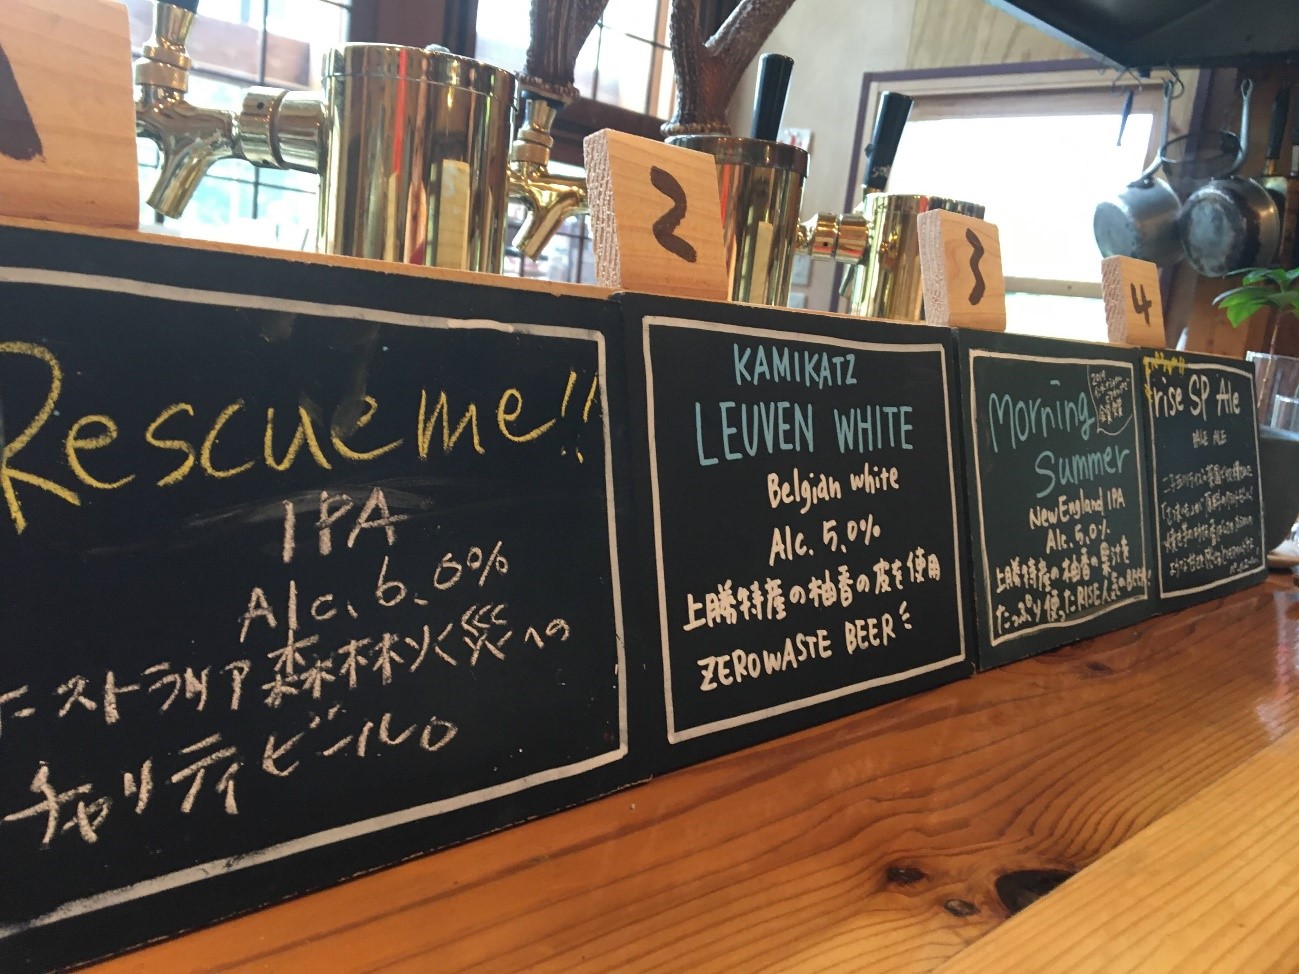 Rescue me!!
IPA
Alc. 6.0%
オーストラリア森林火災への
チャリティビール。
2
KAMIKATZ
LEUVEN WHITE
Belgian white
Alc. 5.0%
上勝特産の柚香の皮を使用
ZEROWASTE BEER
3
Morning
Summer
New England IPA
Alc. 5.0%
上勝特産の柚香の果汁を
たっぷり使ったRISE人気のBEER!
4
rise SP Ale
PALE ALE